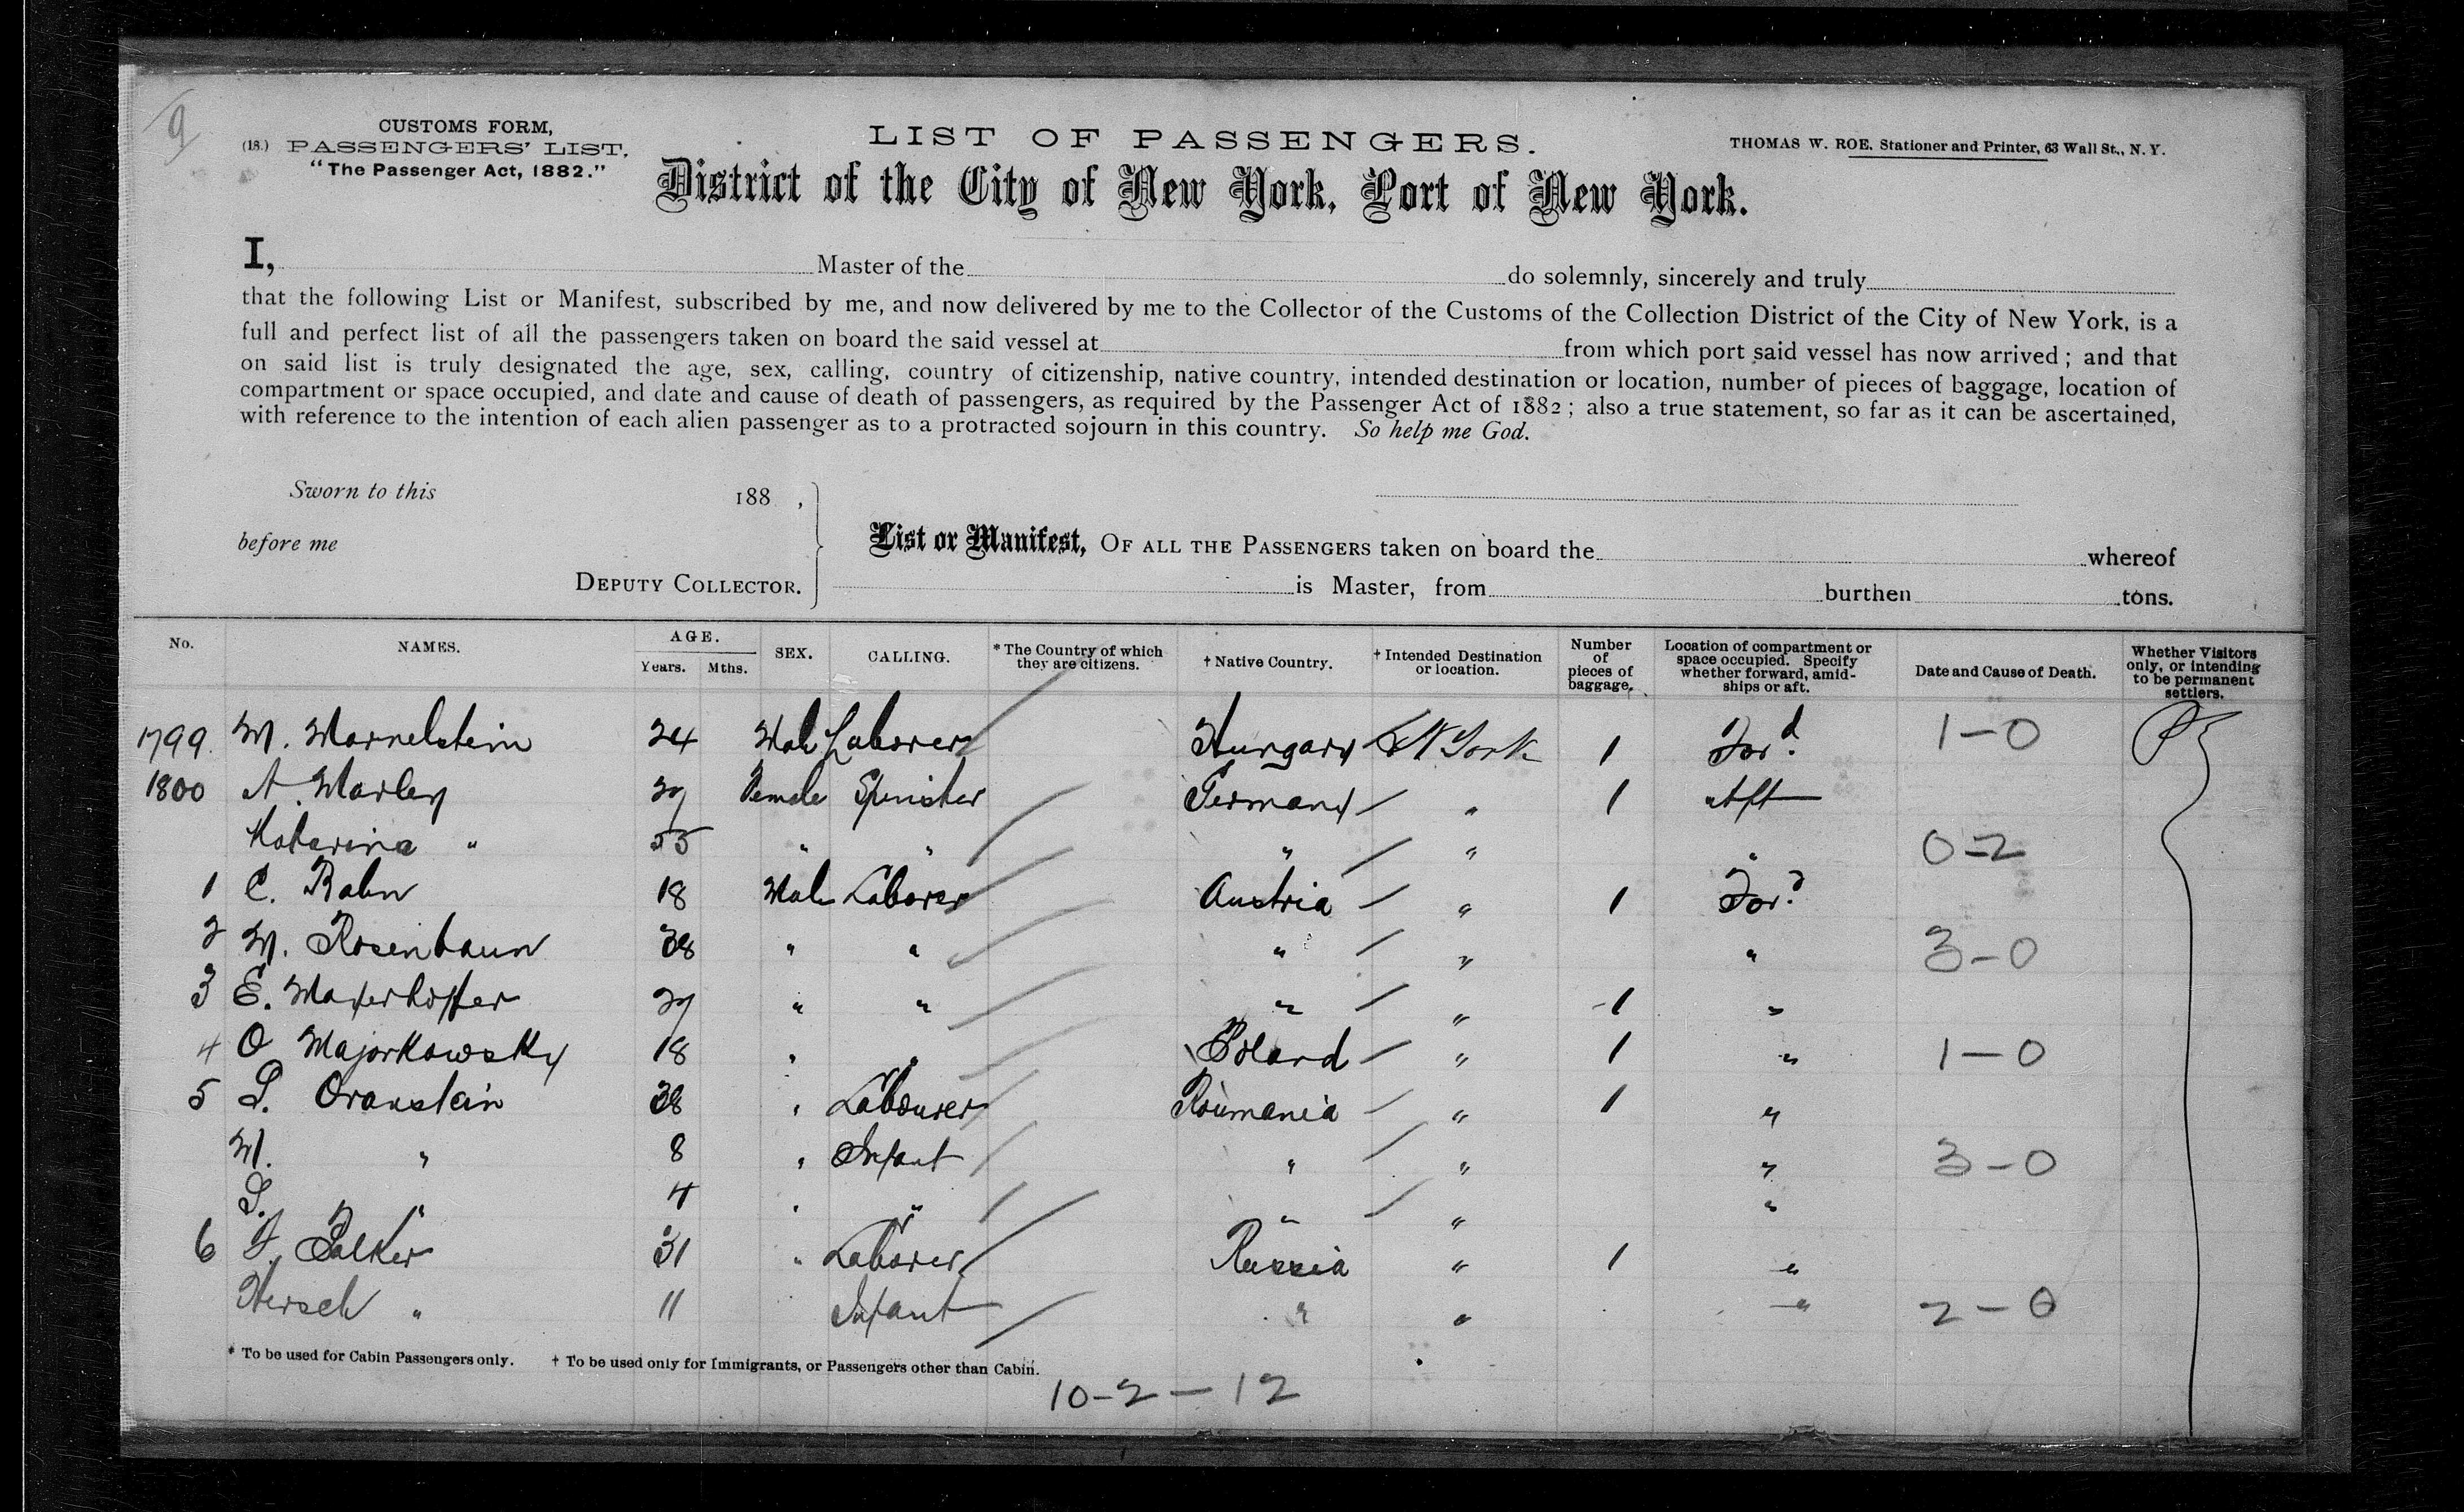 9
CUSTOMS FORM,
(18.) PASSENGERS' LIST.
"The Passenger Act, 1882."
LIST OF PASSENGERS.
THOMAS W. ROE, Stationer and Printer, 63 Wall St., N. Y.
District of the City of New York, Port of New York.
I, Master of the do solemnly, sincerely and truly
that the following List or Manifest, subscribed by me, and now delivered by me to the Collector of the Customs of the Collection District of the City of New York, is a
full and perfect list of all the passengers taken on board the said vessel at from which port said vessel has now arrived; and that
on said list is truly designated the age, sex, calling, country of citizenship, native country, intended destination or location, number of pieces of baggage, location of
compartment or space occupied, and date and cause of death of passengers, as required by the Passenger Act of 1882; also a true statement, so far as it can be ascertained,
with reference to the intention of each alien passenger as to a protracted sojourn in this country. So help me God.
Sworn to this 188 ,
before me
DEPUTY COLLECTOR.
List or Manifest, OF ALL THE PASSENGERS taken on board the whereof
is Master, from burthen tons.
No. NAMES. AGE. Years. Mths. SEX. CALLING. * The Country of which they are citizens. † Native Country. † Intended Destination or location. Number of pieces of baggage. Location of compartment or space occupied. Specify whether forward, amidships or aft. Date and Cause of Death. Whether Visitors only, or intending to be permanent settlers.
1799 M. 24 Male Laborer Hungary N York 1 For^d. 1-0 P
1800 A. Marley 27 Female Spinster Germany " 1 Aft
Katarina " 55 " " " " " 0-2
1 C. Rahn 18 Male Laborer Austria " 1 For^d.
2 M. Rosenbaun 38 " " " " " 3-0
3 E. Mayerhoffer 27 " " " " 1 "
4 O Majorkowsky 18 " " Poland " 1 " 1-0
5 S. Oranstein 38 " Labourer Roumania " 1 "
M. " 8 " Infant " " " 3-0
S. " 4 " " " " "
6 Palker 31 " Laborer Russia " 1 "
Hersch " 11 Infant " " " 2-0
* To be used for Cabin Passengers only. † To be used only for Immigrants, or Passengers other than Cabin.
10-2-12